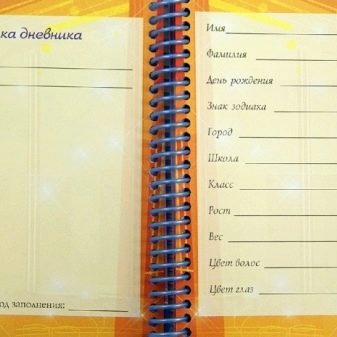 ка дневника
од заполнения:
Имя
Фамилия
День рождения
Знак зодиака
Город
Школа
Класс
Рост
Вес
Цвет волос
Цвет глаз